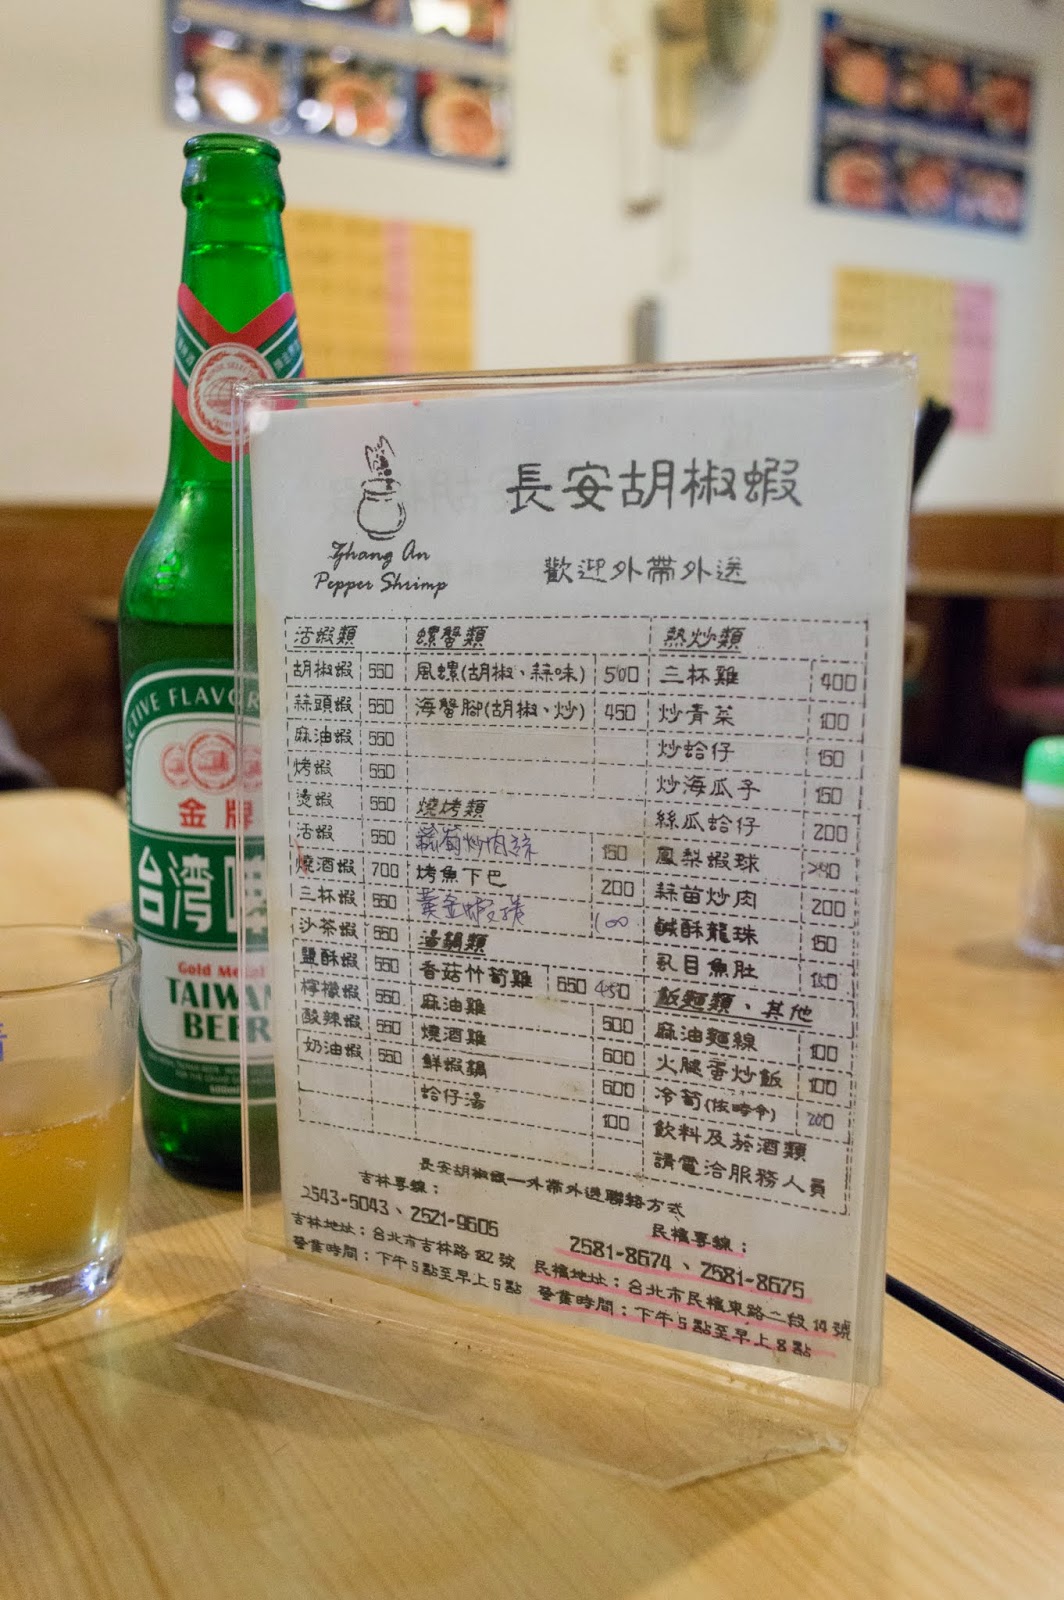 金牌
台灣啤
DISTINCTIVE FLAVOR
Gold Medal
TAIWAN
BEER
Zhang An
Pepper Shrimp
長安胡椒蝦
歡迎外帶外送
活蝦類
胡椒蝦 550
蒜頭蝦 550
麻油蝦 550
烤蝦 550
燙蝦 550
活蝦 550
燒酒蝦 700
三杯蝦 550
沙茶蝦 550
鹽酥蝦 550
檸檬蝦 550
酸辣蝦 550
奶油蝦 550
螺蟹類
風螺(胡椒、蒜味) 500
海蟹腳(胡椒、炒) 450
燒烤類
蘿蔔炒肉絲 150
烤魚下巴 200
黃金蝦 100
湯鍋類
香菇竹荀雞 550 450
麻油雞 500
燒酒雞 600
鮮蝦鍋 600
蛤仔湯 100
熱炒類
三杯雞 400
炒青菜 100
炒蛤仔 150
炒海瓜子 150
絲瓜蛤仔 200
鳳梨蝦球
蒜苗炒肉 200
鹹酥龍珠 150
虱目魚肚 180
飯麵類、其他
麻油麵線 100
火腿蛋炒飯 100
冷荀(依時令) 200
飲料及菸酒類
請電洽服務人員
長安胡椒蝦—外帶外送聯絡方式
吉林專線：
2543-5043、2521-9605
吉林地址：台北市吉林路82號
營業時間：下午5點至早上5點
民權專線：
2581-8674、2581-8675
民權地址：台北市民權東路二段14號
營業時間：下午5點至早上8點